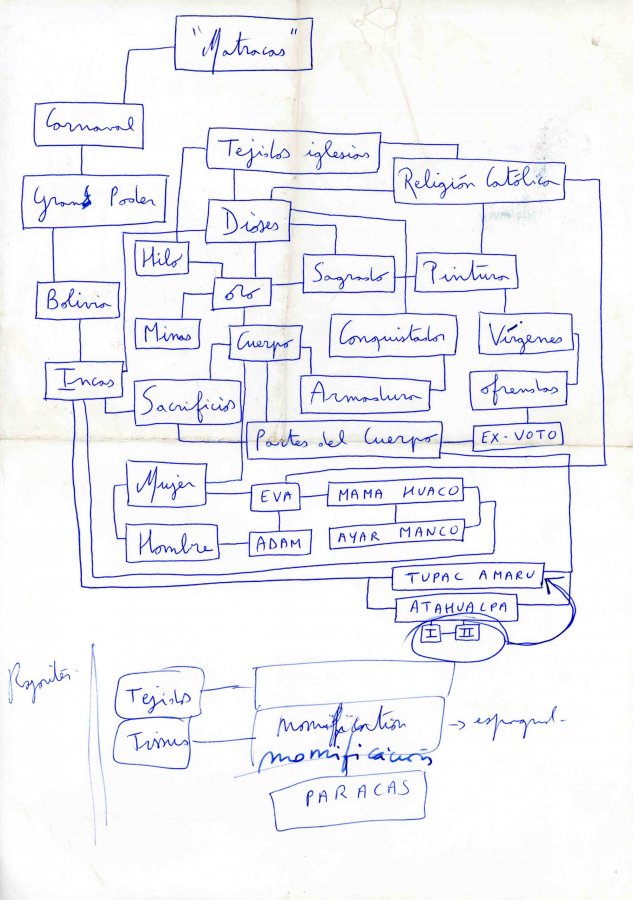 "Matracas"
Carnaval
Tejidos iglesias
Religión Católica
Gran Poder
Dioses
Hilo
Sagrado
Pintura
Bolivia
oro
Minas
Cuerpo
Conquistador
Vírgenes
Incas
Sacrificios
Armadura
ofrendas
Partes del Cuerpo
EX-VOTO
Mujer
EVA
MAMA HUACO
Hombre
ADAM
AYAR MANCO
TUPAC AMARU
ATAHUALPA
I II
Rajouter
Tejidos
Tissus
Momification
→ espagnol.
momificación
PARACAS